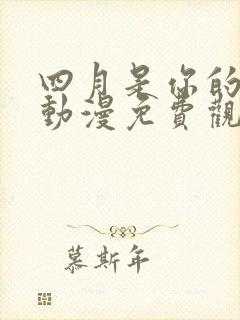 四月是你的
動漫免費觀
慕斯年